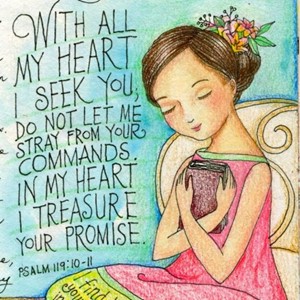 WITH ALL
MY HEART
I SEEK YOU,
DO NOT LET ME
STRAY FROM YOUR
COMMANDS.
IN MY HEART
I TREASURE
YOUR PROMISE.
PSALM 119:10-11
find
you